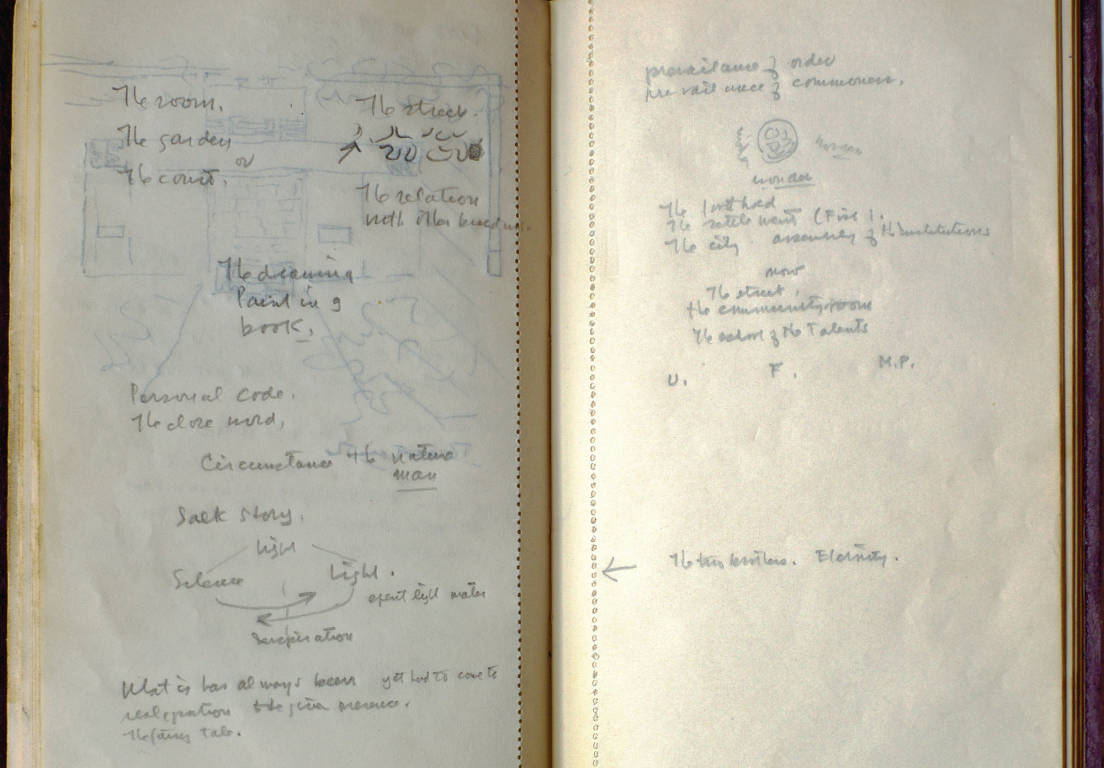 The room.
The garden
or
The court.
The street.
The relation
with other buildings.
The drawing
Painting
book.
Personal code.
The close word,
Circumstance the nature
man
Salk story.
light
Silence
Light.
spent light matter
Inspiration
What is has always been yet had to come to
realization to be given presence.
The fairy tale.
prevailance of order
prevailance of commonness.
wonder
The
The settlement (Fire).
The city assembly of the institutions
now
The street,
the community room
The school of the Talents
U. F. M.P.
The two brothers. Eternity.